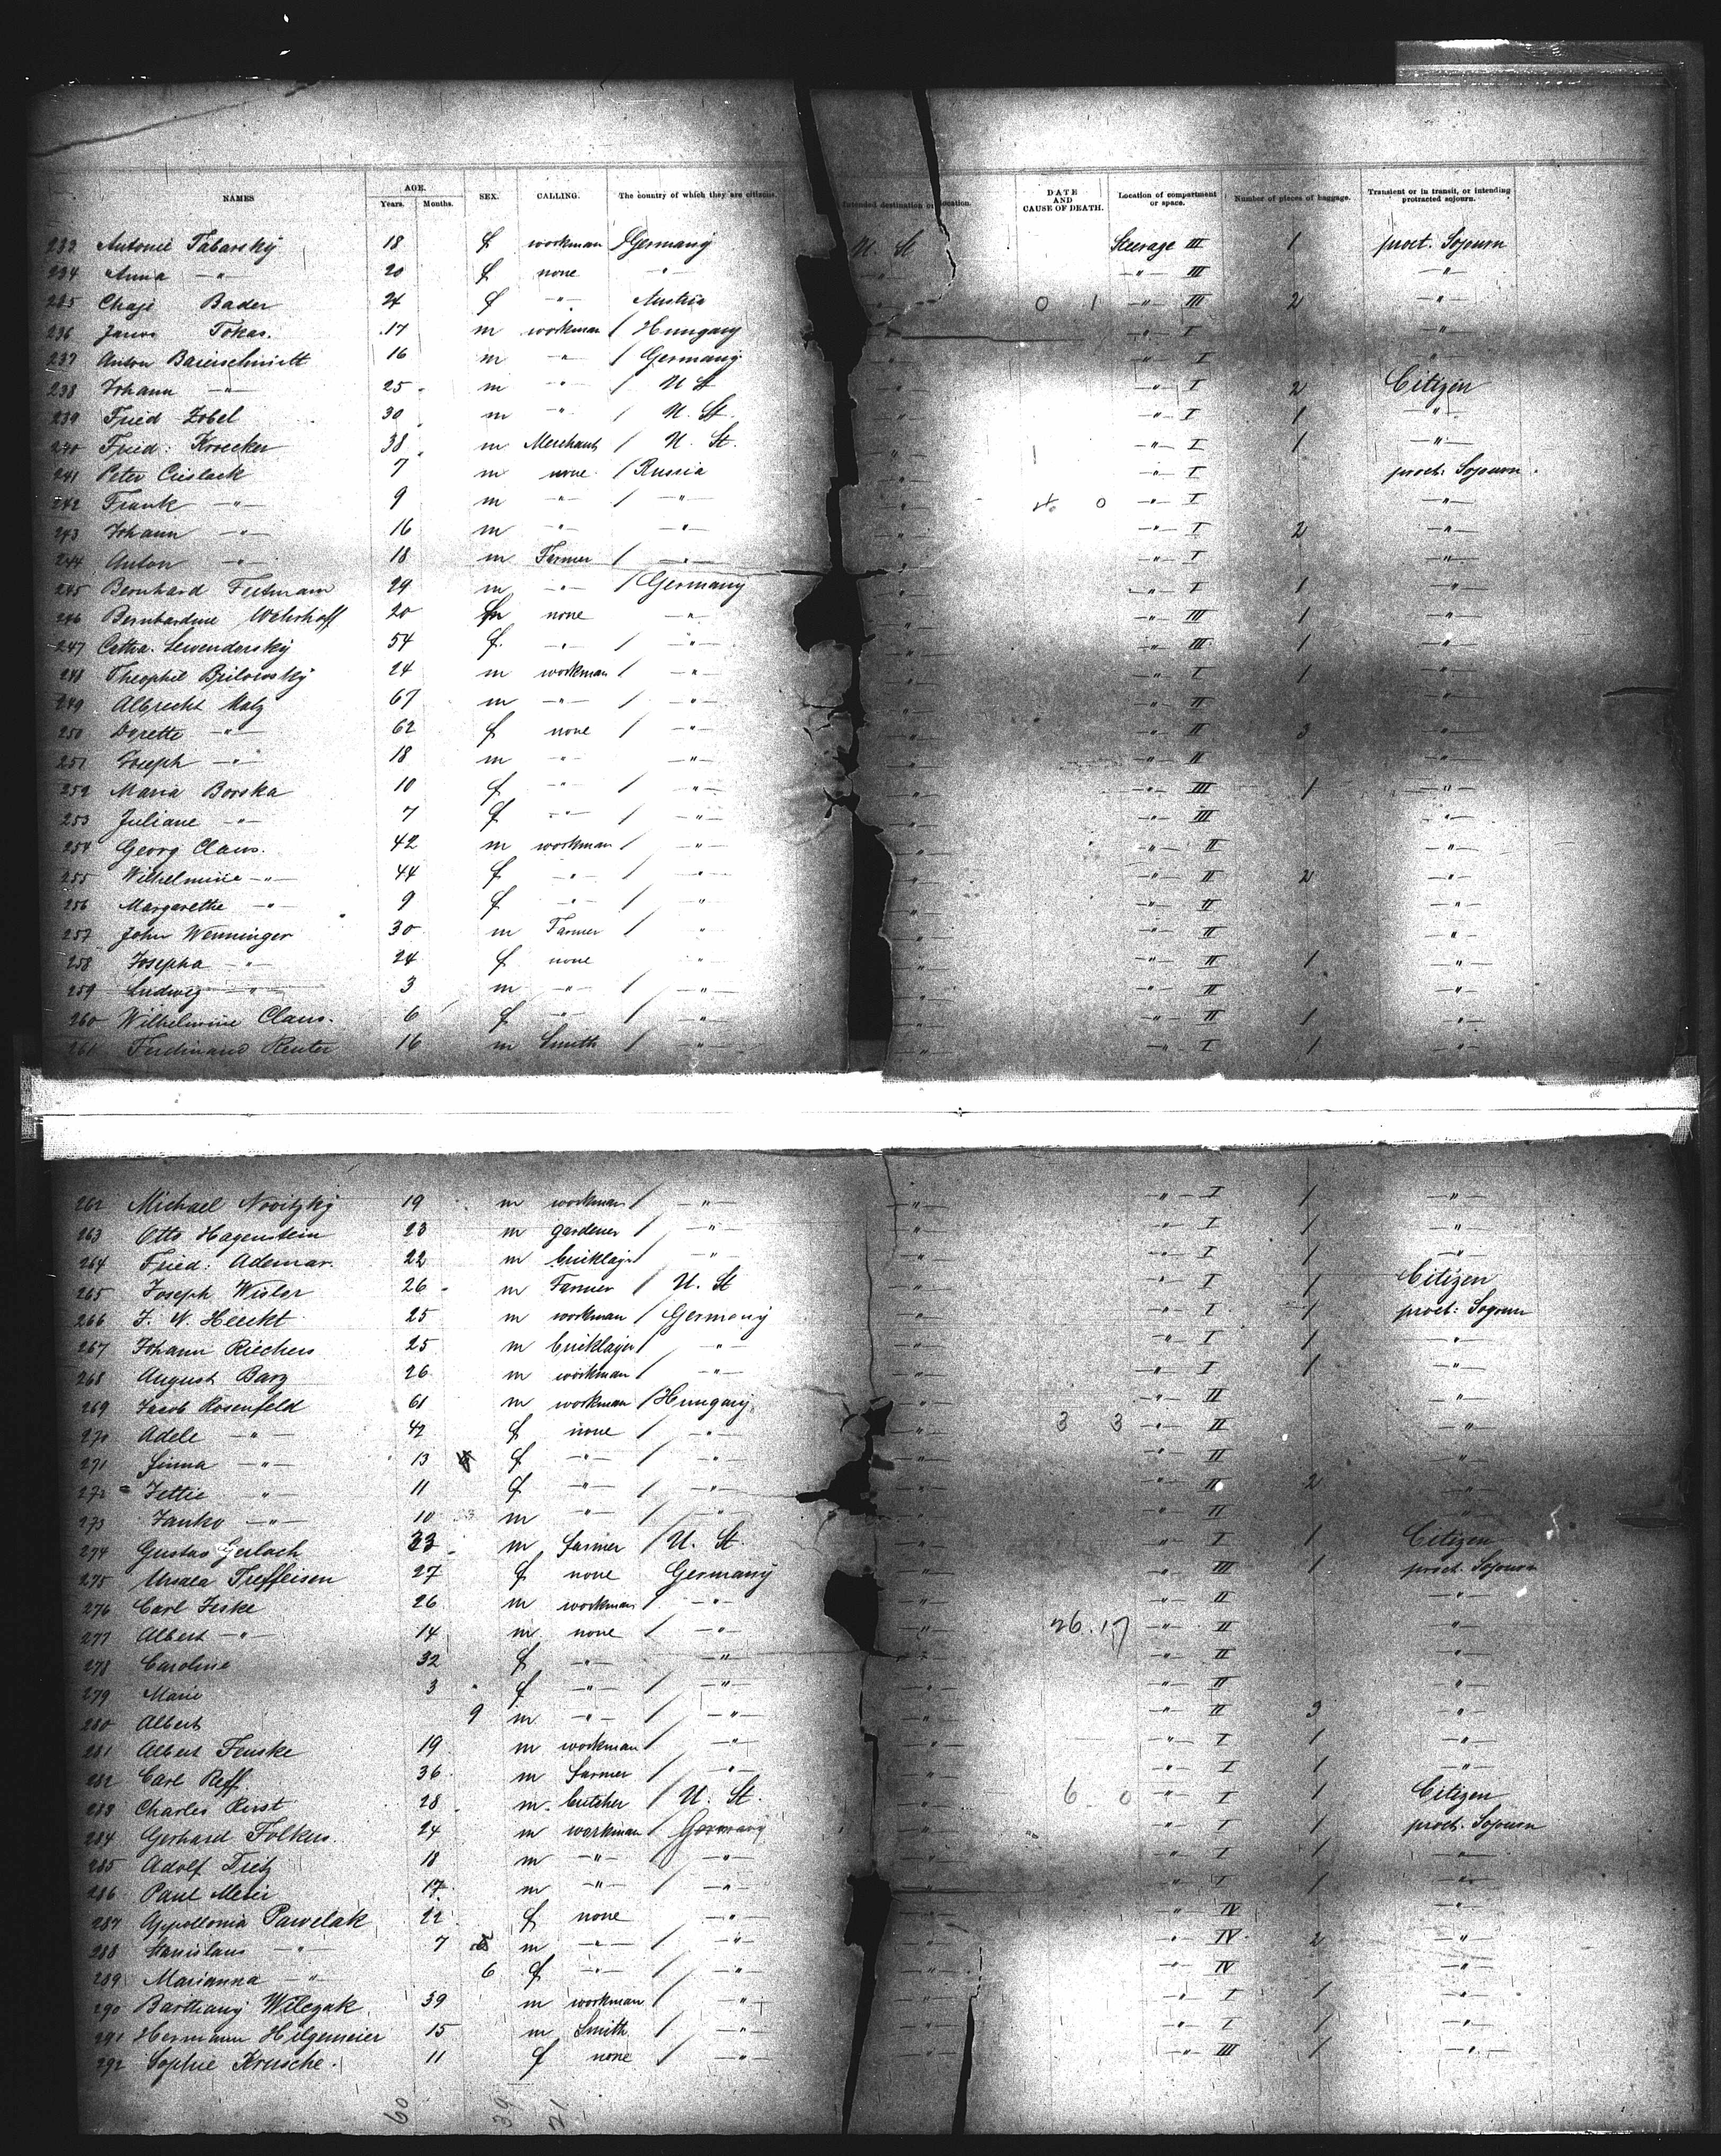 NAMES AGE. Years. Months. SEX. CALLING. The country of which they are citizens. Intended destination or location. DATE AND CAUSE OF DEATH. Location of compartment or space. Number of pieces of baggage. Transient or in transit, or intending protracted sojourn.
233 Antonie Tabarsky 18 f workman Germany U. St Steerage III 1 proct. Sojourn
234 Anna -"- 20 f none -"- -"- -"- III -"-
235 Chaje Bader 24 f -"- Austria -"- 0 1 -"- III 2 -"-
236 Janos Tokas. 17 m workman / Hungary -"- -"- I -"-
237 Anton Baierschmitt 16 m -"- / Germany -"- -"- I -"-
238 Johann -"- 25 m -"- / U St -"- -"- I 2 Citizen
239 Fried Zobel 30 m -"- / U. St. -"- -"- I 1 -"-
240 Fried: Kroecker 38 m Merchant / U. St. -"- -"- I 1 -"-
241 Peter Cieslack 7 m none / Russia -"- -"- I proct: Sojourn.
242 Frank -"- 9 m -"- / -"- -"- 4 0 -"- I -"-
243 Johann -"- 16 m -"- -"- -"- -"- I 2 -"-
244 Anton -"- 18 m Farmer / -"- -"- -"- I -"-
245 Bernhard 29 m -"- / Germany -"- -"- I 1 -"-
246 Bernhardine Wehrhoff 20 f none -"- -"- -"- III 1 -"-
247 Catha. Lewendorsky 54 f. -"- / -"- -"- -"- III 1 -"-
248 Theophil Bjilowsky 24 m workman / -"- -"- -"- I 1 -"-
249 Albrecht Matz 67 m -"- / -"- -"- -"- II -"-
250 Dorette -"- 62 f none / -"- -"- -"- II 3 -"-
251 Joseph -"- 18 m -"- -"- -"- -"- II -"-
252 Maria Borska 10 f -"- / -"- -"- -"- III 1 -"-
253 Juliane -"- 7 f -"- / -"- -"- -"- III -"-
254 Georg Claus. 42 m workman / -"- -"- -"- II -"-
255 Wilhelmine -"- 44 f -"- / -"- -"- -"- II 2 -"-
256 Margarethe -"- 9 f -"- / -"- -"- -"- II -"-
257 John Wenninger 30 m Farmer / -"- -"- -"- II -"-
258 Josepha -"- 24 f none -"- -"- -"- II 1 -"-
259 Ludwig -"- 3 m -"- / -"- -"- -"- II -"-
260 Wilhelmine Claus. 6 f -"- / -"- -"- -"- II 1 -"-
261 Ferdinand Reuter 16 m Smith / -"- -"- -"- I 1 -"-
262 Michael Novitzky 19 m workman / -"- -"- -"- I 1 -"-
263 Otto Hagenstein 23 m gardener / -"- -"- -"- I 1 -"-
264 Fried: Ademar. 22 m bricklayer -"- -"- -"- I 1 -"-
265 Joseph Wisler 26 m Farmer / U. St -"- -"- I 1 Citizen
266 F. W. Heickt 25 m workman / Germany -"- -"- I 1 proct: Sojourn
267 Johann Riechers 25 m bricklayer / -"- -"- -"- I 1 -"-
268 August Barz 26 m workman / -"- -"- -"- I 1 -"-
269 Jacob Rosenfeld 61 m workman / Hungary -"- -"- II -"-
270 Adele -"- 42 f none / -"- -"- 3 3 -"- II -"-
271 -"- 13 f -"- / -"- -"- -"- II -"-
272 Jettie -"- 11 f -"- / -"- -"- -"- II 2 -"-
273 Janko -"- 10 m -"- / -"- -"- -"- II -"-
274 Gustav Gerlach 23 m farmer / U. St. -"- -"- I 1 Citizen
275 Ursula Treffeisen 27 f none Germany -"- -"- III 1 proct. Sojourn
276 Carl Jeske 26 m workman / -"- -"- -"- II -"-
277 Albert -"- 14 m none / -"- -"- 26.17 -"- II -"-
278 Caroline 32 f -"- -"- -"- -"- II -"-
279 Marie 3 f -"- / -"- -"- -"- II -"-
280 Albert 9 m -"- / -"- -"- -"- II 3 -"-
281 Albert Fenske 19 m workman / -"- -"- -"- I 1 -"-
282 Carl Reff. 36 m farmer / -"- -"- -"- I 1 -"-
283 Charles Rerst 28 m. butcher / U. St. -"- 6 0 -"- I 1 Citizen
284 Gerhard Folkers. 24 m workman / Germany -"- -"- I 1 proct. Sojourn
285 Adolf Dietz 18 m -"- / -"- -"- -"- I 1 -"-
286 Paul Meier 17 m -"- / -"- -"- -"- I 1 -"-
287 Appollonia Pawelak 22 f none -"- -"- -"- IV -"-
288 Stanislaus -"- 7 m -"- / -"- -"- -"- IV 2 -"-
289 Marianna -"- 6 f -"- / -"- -"- -"- IV -"-
290 Wilczak 39 m workman / -"- -"- -"- I 1 -"-
291 Hermann Hilgemeier 15 m Smith / -"- -"- -"- I 1 -"-
292 Sophie Krusche. 11 f none / -"- -"- -"- III 1 -"-
60 39 21